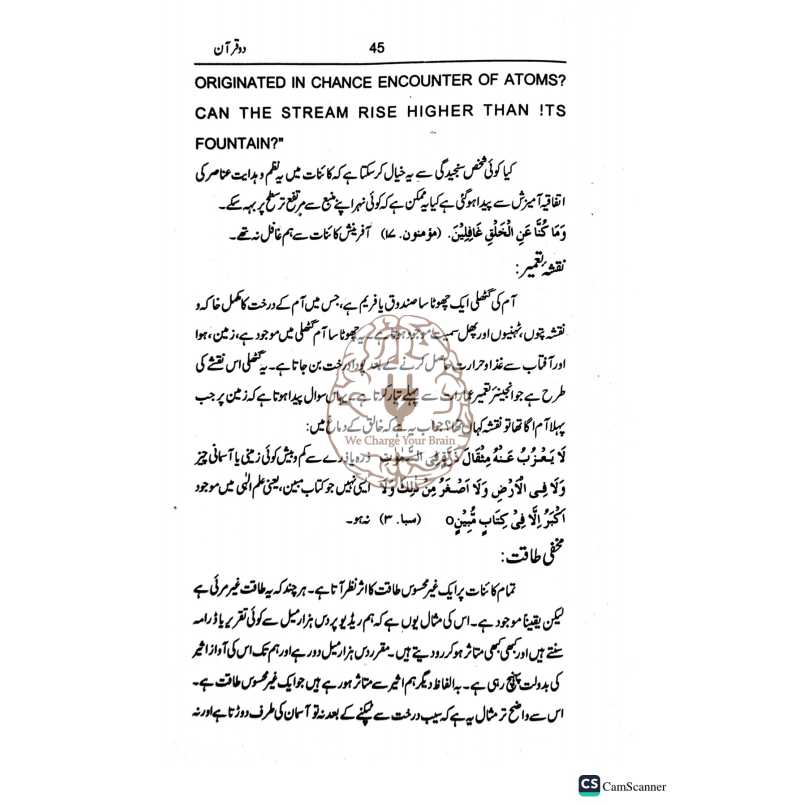 دو قرآن
45
ORIGINATED IN CHANCE ENCOUNTER OF ATOMS?
CAN THE STREAM RISE HIGHER THAN !TS
FOUNTAIN?"
کیا کوئی شخص سنجیدگی سے یہ خیال کر سکتا ہے کہ کائنات میں یہ نظم و ہدایت عناصر کی
اتفاقیہ آمیزش سے پیدا ہو گئی ہے کیا یہ ممکن ہے کہ کوئی نہر اپنے منبع سے مرتفع تر سطح پر بہہ سکے۔
وَمَا كُنَّا عَنِ الْخَلْقِ غَافِلِيْنَ. (مؤمنون. ۱۷) آفرینش کائنات سے ہم غافل نہ تھے۔
نقشہ تعمیر:
آم کی گٹھلی ایک چھوٹا سا صندوق یا فریم ہے، جس میں آم کے درخت کا مکمل خاکہ و
نقشہ پتوں، ٹہنیوں اور پھل سمیت موجود ہوتا ہے۔ یہ چھوٹا سا آم گٹھلی میں موجود ہے، زمین، ہوا
اور آفتاب سے غذا و حرارت حاصل کرنے کے بعد پورا درخت بن جاتا ہے۔ یہ گٹھلی اس نقشے کی
طرح ہے جو انجینئر تعمیر عمارات سے پہلے تیار کرتا ہے۔ یہاں سوال پیدا ہوتا ہے کہ زمین پر جب
پہلا آم اگا تھا تو نقشہ کہاں تھا؟ جواب یہ ہے کہ خالق کے دماغ میں:
We Charge Your Brain
لَا يَعْزُبُ عَنْهُ مِثْقَالُ ذَرَّةٍ فِي السَّمٰوٰتِ ذرہ یا ذرے سے کم و بیش کوئی زمینی یا آسمانی چیز
وَلَا فِي الْاَرْضِ وَلَا اَصْغَرُ مِنْ ذٰلِكَ وَلَا ایسی نہیں جو کتاب مبین، یعنی علم الٰہی میں موجود
اَكْبَرُ اِلَّا فِيْ كِتَابٍ مُّبِيْنٍ٥ (سبا. ۳) نہ ہو۔
مخفی طاقت:
تمام کائنات پر ایک غیر محسوس طاقت کا اثر نظر آتا ہے۔ ہر چند کہ یہ طاقت غیر مرئی ہے
لیکن یقیناً موجود ہے۔ اس کی مثال یوں ہے کہ ہم ریڈیو پر دس ہزار میل سے کوئی تقریر یا ڈرامہ
سنتے ہیں اور کبھی کبھی متاثر ہو کر رو دیتے ہیں۔ مقرر دس ہزار میل دور ہے اور ہم تک اس کی آواز اثیر
کی بدولت پہنچ رہی ہے۔ بہ الفاظ دیگر ہم اثیر سے متاثر ہو رہے ہیں جو ایک غیر محسوس طاقت ہے۔
اس سے واضح تر مثال یہ ہے کہ سیب درخت سے ٹپکنے کے بعد نہ تو آسمان کی طرف دوڑتا ہے اور نہ
CS CamScanner